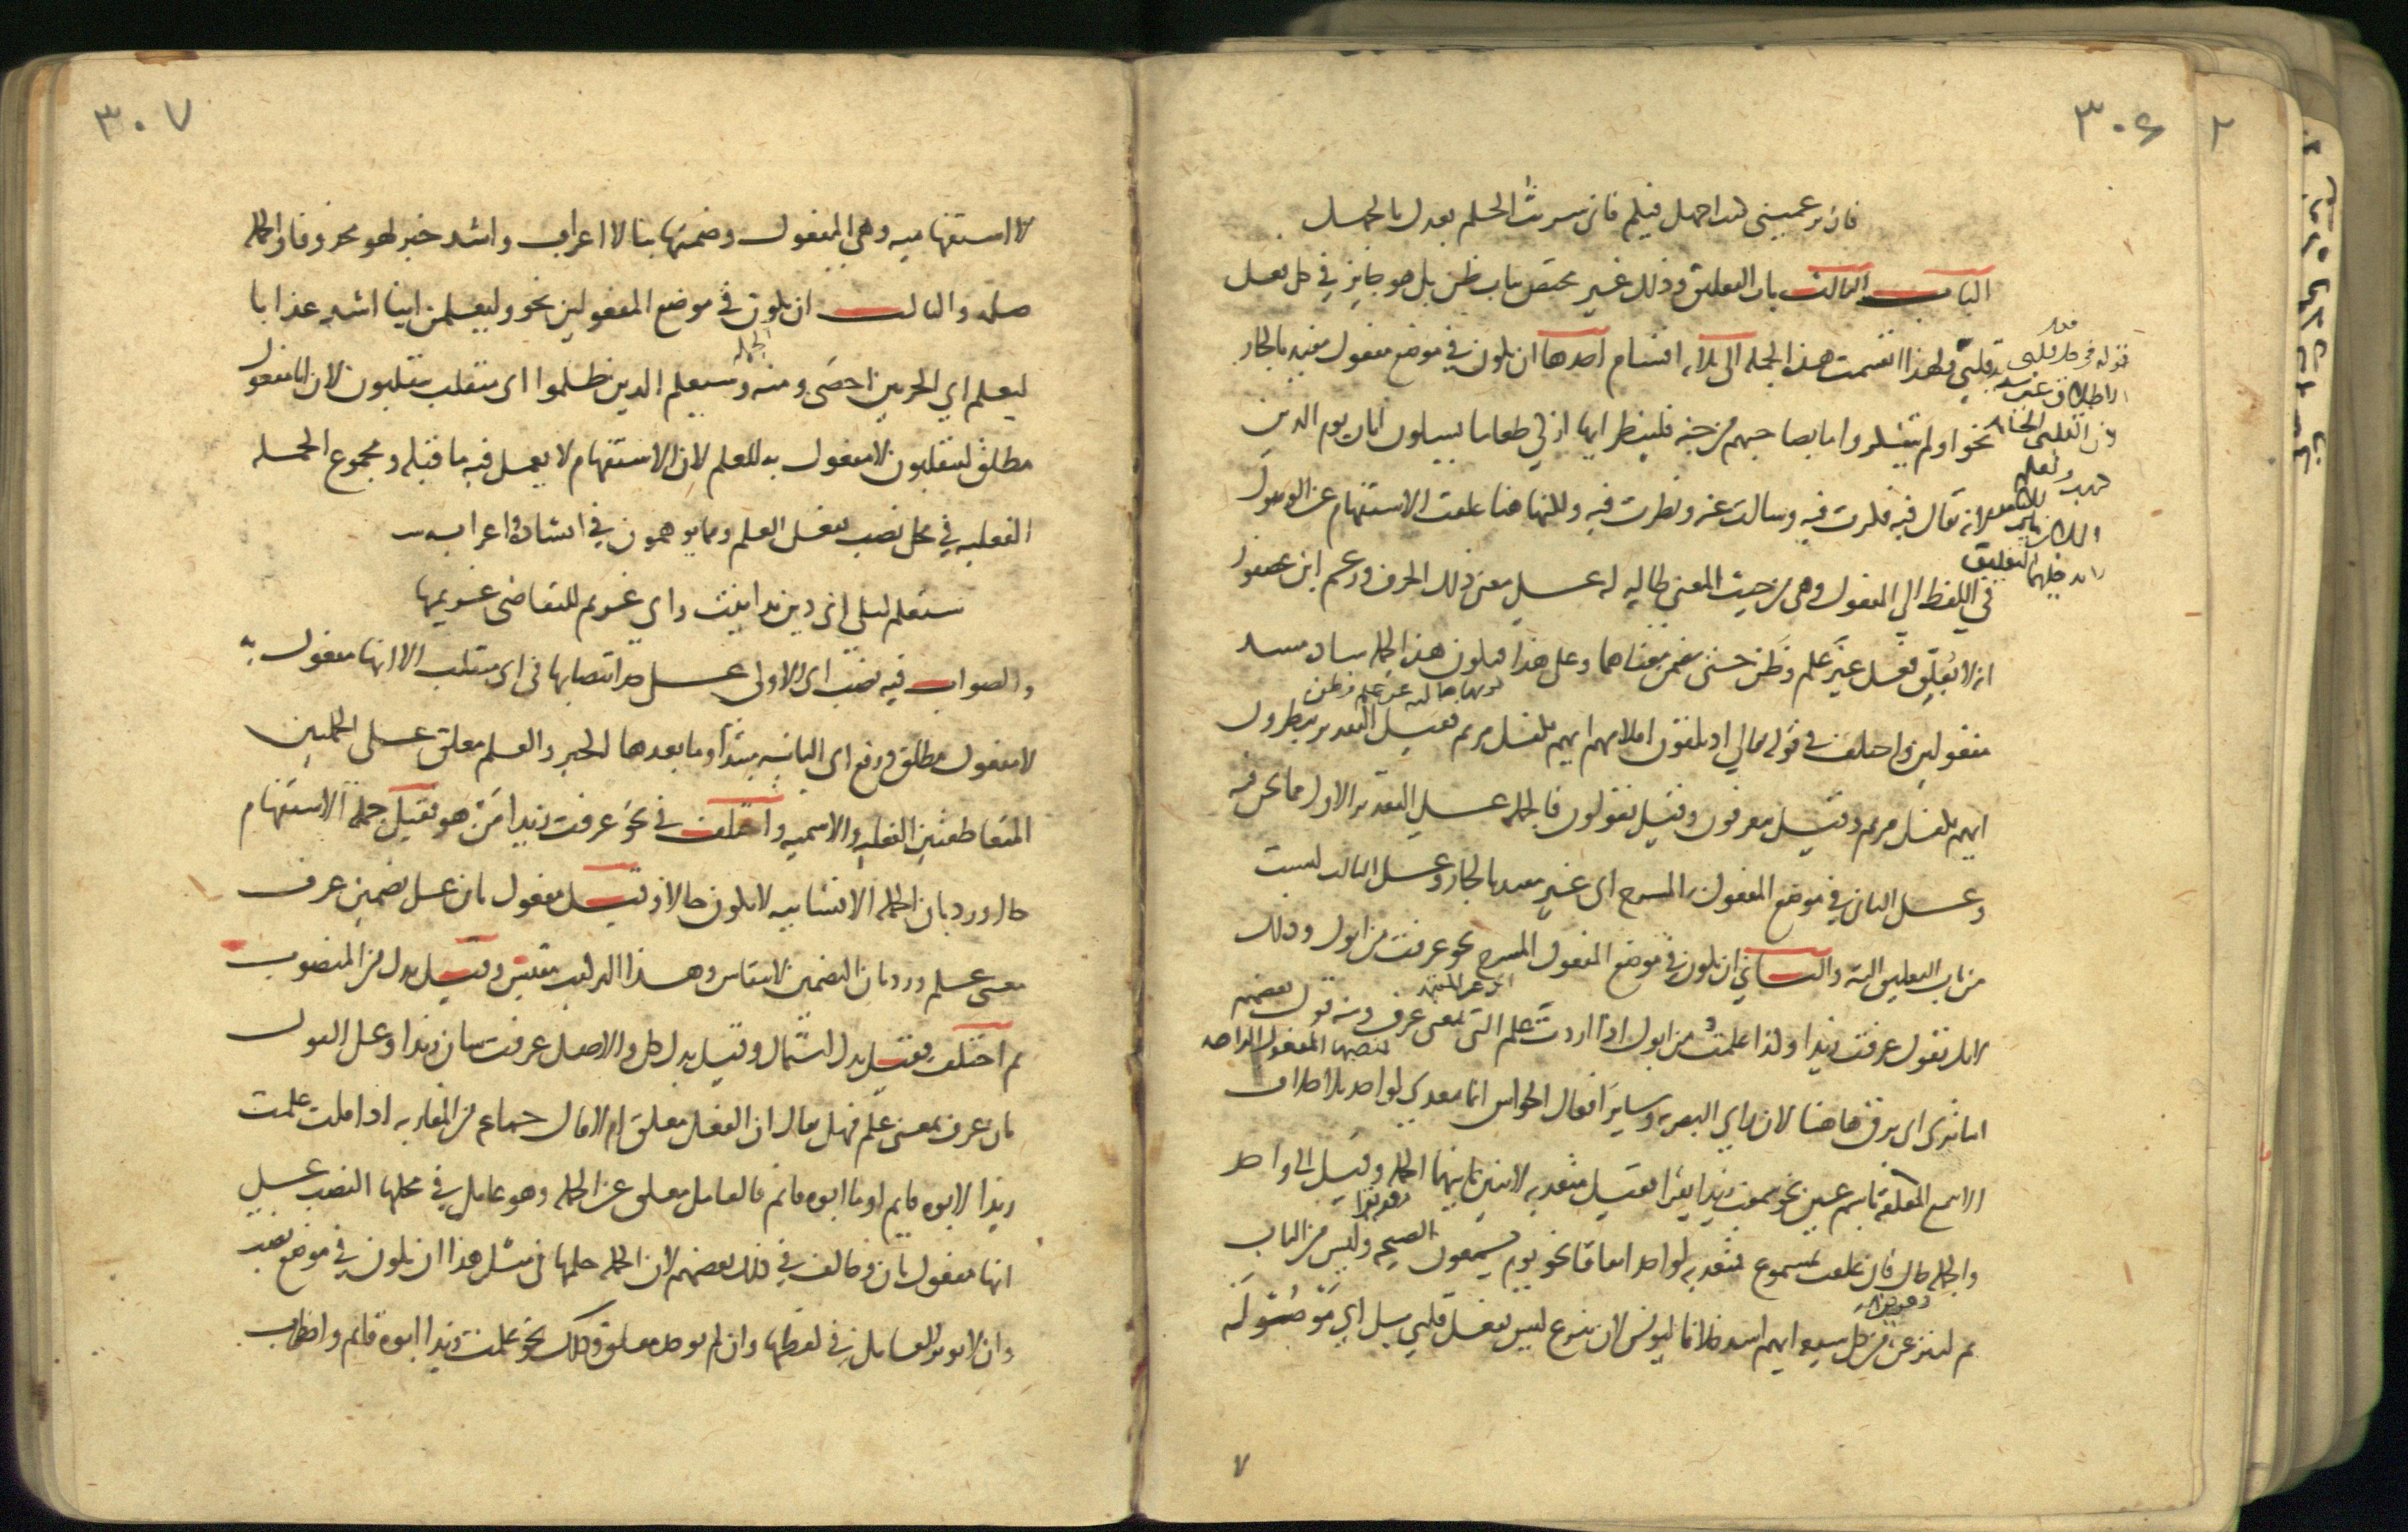 ٣٠٦
فان تزعميني كنت اجهل فيكم فاني شريت الحلم بعدك بالجهل
الباب الثالث باب التعليق وذلك غير مختص بباب ظن بل هو جايز في كل فعل
قلبي ولهذا انقسمت هذه الجمله الى ثلاثه اقسام احدها ان يكون في موضع مفعول مقيد بالجار
نحو اولم يتفكروا ما بصاحبهم من جنه فلينظر ايها ازكى طعاما يسيلون ايان يوم الدين
لانه يقال فيه فكرت فيه وسالت عنه ونظرت فيه ولكنها هنا علقت الاستفهام عن الوصول
في اللفظ الي المفعول وهي من حيث المعنى طالبه له على معنى ذلك الحرف وزعم ابن عصفور
انه لا يعلق فعل غير علم وظن حتى يضمن معناهما وعلى هذا فيكون هذه الجمله ساده مسد
مفعولين واختلف في قوله تعالي اذ يلقون اقلامهم ايهم يكفل مريم فقيل التقدير ينظرون
ايهم يكفل مريم وقيل يعرفون وقيل يقولون فالجمله على التقدير الاول مما نحن فيه
وعلى الثاني في موضع المفعول المسرح اي غير مقيد بالجار وعلى الثالث ليست
من باب التعليق البته والثاني ان يكون في موضع المفعول المسرح نحو عرفت من ابوك وذلك
لانك تقول عرفت زيدا وكذا علمت من ابوك اذا اردت علم التي بمعنى عرف ومنه قول بعضهم
اما ترى اي برق هاهنا لان راي البصريه وساير افعال الحواس انما تتعدى لواحد بلا خلاف
الا سمع المعلقه باسم عين نحو سمعت زيدا يقرا فقيل متعديه لاثنين ثانيهما الجمله وقيل الى واحد
والجمله حال فان علقت بمسموع فمتعديه لواحد اتفاقا نحو يوم يسمعون الصيحه وليس من الباب
ثم لننزعن من كل شيعه ايهم اشد خلافا ليونس لان ننزع ليس بفعل قلبي بل اي موصوله
٧
٣٠٧
لا استفهاميه وهي المفعول وضمتها بنا لا اعراب واشد خبر لهو محذوفا والجمله
صله والثالث ان يكون في موضع المفعولين نحو وليعلمن اينا اشد عذابا
ليعلم اي الحزبين احصى ومنه وسيعلم الذين ظلموا اي منقلب ينقلبون لان ايا مفعول
مطلق لينقلبون لا مفعول به للعلم لان الاستفهام لا يعمل فيه ما قبله ومجموع الجمله
الفعليه في محل نصب بفعل العلم ومما يوهمون في انشاده واعرابه
ستعلم ليلى اي دين تداينت واي غريم للتقاضي غريمها
والصواب فيه نصب اي الاولى على حد انتصابها في اي منقلب الا انها مفعول به
لا مفعول مطلق ورفع اي الثانيه مبتدا وما بعدها الخبر والعلم معلق على الجملتين
المتعاطفتين الفعليه والاسميه واختلف في نحو عرفت زيدا من هو فقيل جمله الاستفهام
حال ورد بان الجمله الانشاييه لا يكون حالا وقيل مفعول ثان على تضمين عرف
معنى علم ورد بان التضمين لا ينقاس وهذا التركيب مقيس وقيل بدل من المنصوب
ثم اختلف فقيل بدل اشتمال وقيل بدل كل والاصل عرفت شان زيدا وعلى القول
بان عرف بمعنى علم فهل يقال ان الفعل معلق ام لا قال جماعه من المغاربه اذا قلت علمت
زيدا لابوه قايم او ما ابوه قايم فالعامل معلق عن الجمله وهو عامل في محلها النصب على
انها مفعول ثان وخالف في ذلك بعضهم لان الجمله حكمها في مثل هذا ان يكون في موضع نصب
وان لا يوثر العامل في لفظها وان لم يوجد معلق وذلك نحو علمت زيدا ابوه قايم واضطرب